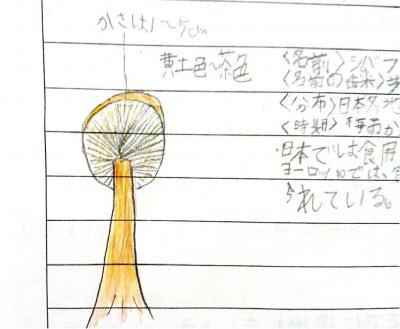 かさは1~5cm
黄土色~茶色
〈名前〉シバフ
〈名前の由来〉芝
〈分布〉日本各地
〈時期〉春から
・日本では食用
ヨーロッパでは、
られている。